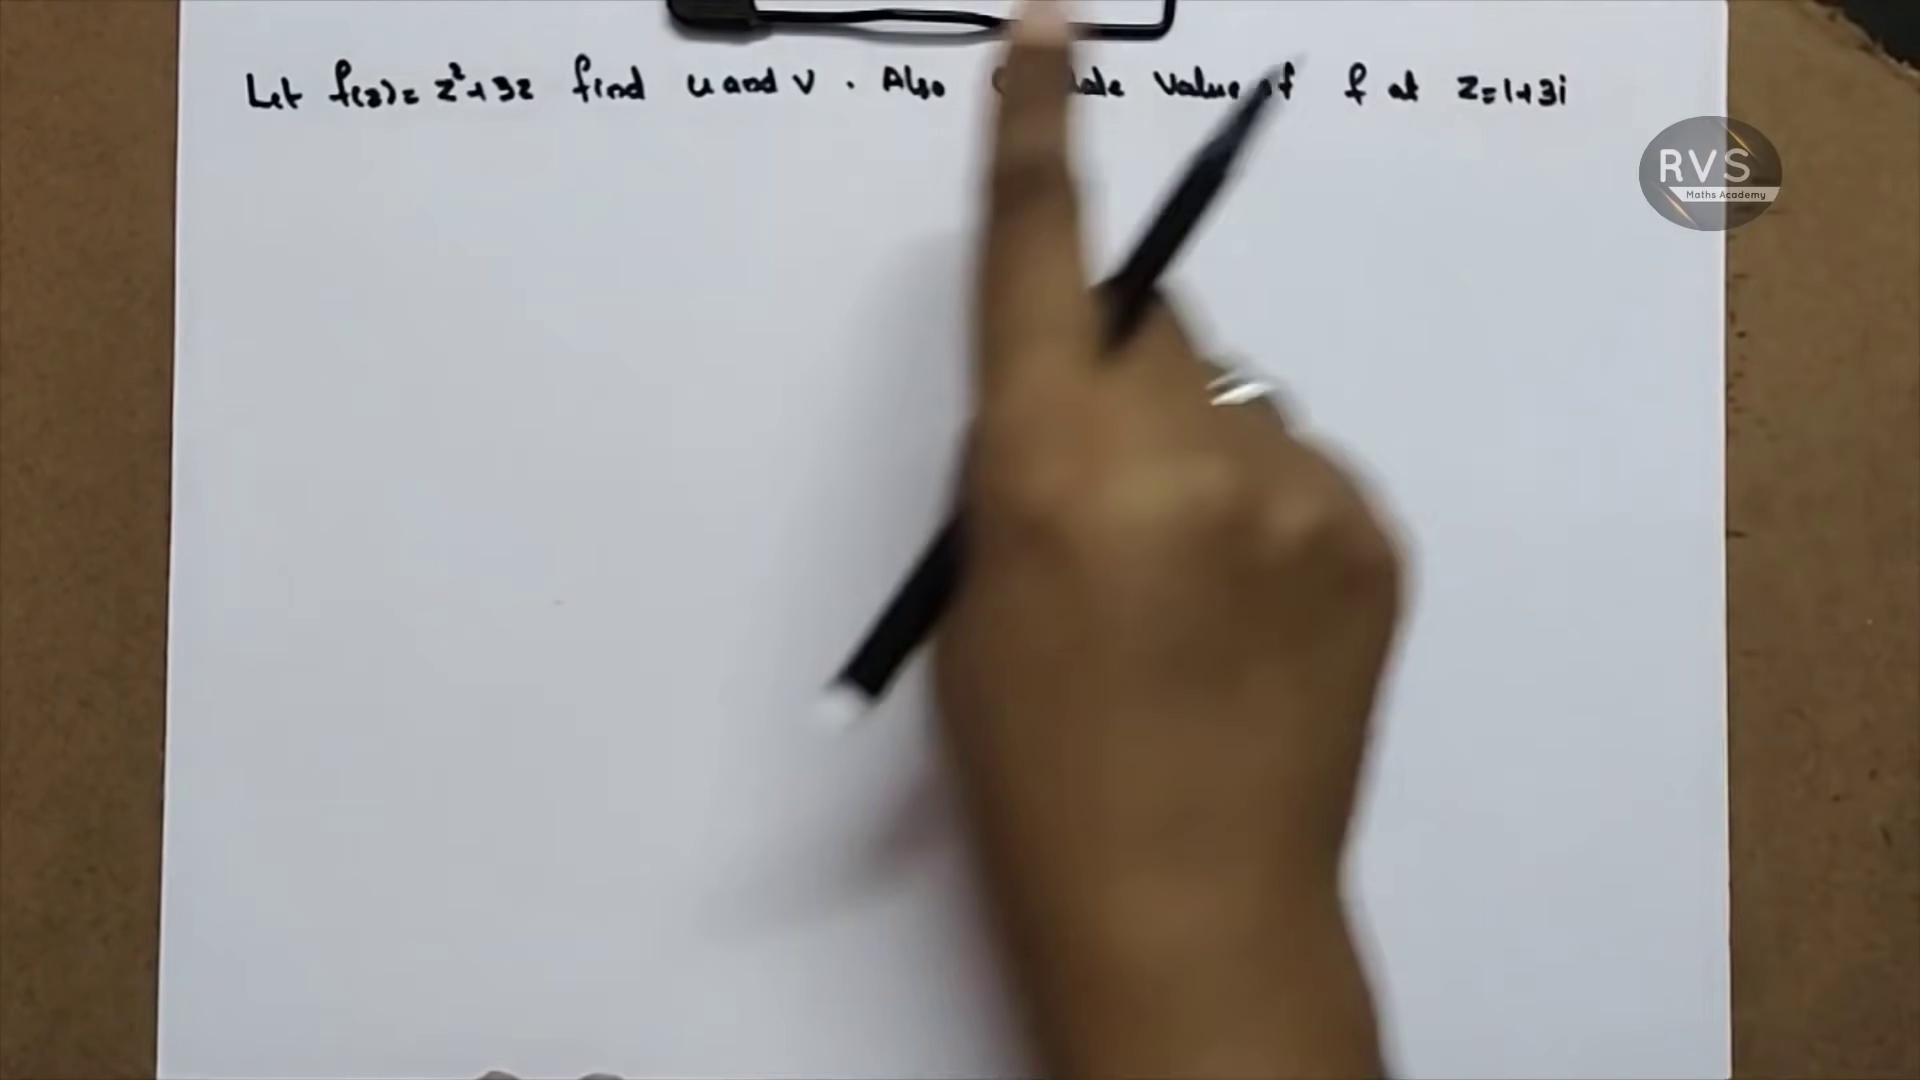 Let f(z)= z²+3z find u and v . Also value of f at z=1+3i
RVS
Maths Academy